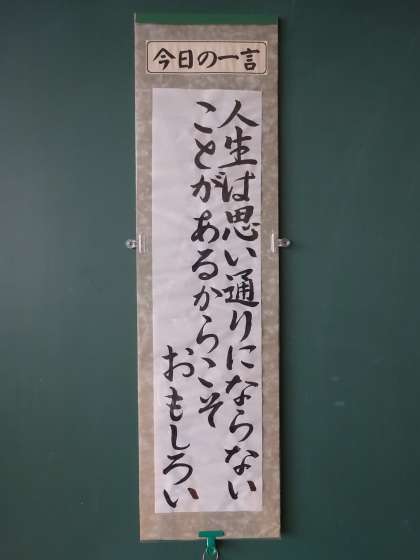 今日の一言
人生は思い通りにならない
ことがあるからこそ
おもしろい